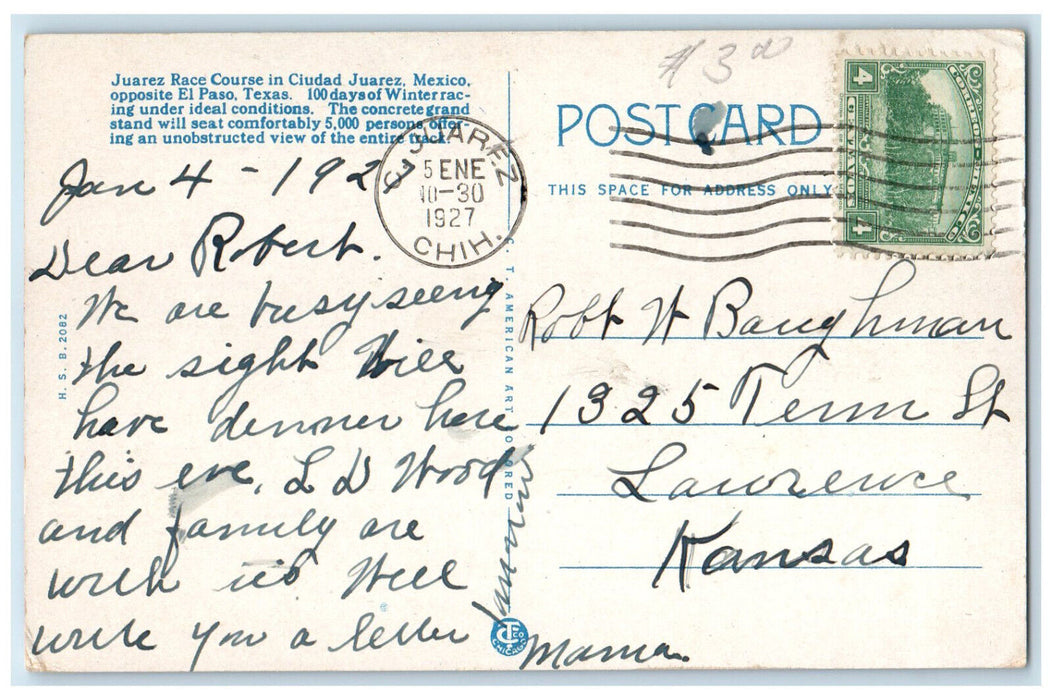 Juarez Race Course in Ciudad Juarez, Mexico,
opposite El Paso, Texas. 100 days of Winter rac-
ing under ideal conditions. The concrete grand
stand will seat comfortably 5,000 persons, offer-
ing an unobstructed view of the entire track.
Jan 4 - 1927
Dear Robert.
We are busy seeing
the sight Will
have dinner here
this eve, L D Wood
and family are
with us Will
write you a letter
tomorrow
Mama.
H. S. B. 2082
C. T. AMERICAN ART COLORED
C. JUAREZ
5 ENE
10-30
1927
CHIH.
$3 00
POST CARD
THIS SPACE FOR ADDRESS ONLY
4
CORREOS
MEXICO
4
Robt W Baughman
1325 Tenn St
Lawrence
Kansas
CHICAGO